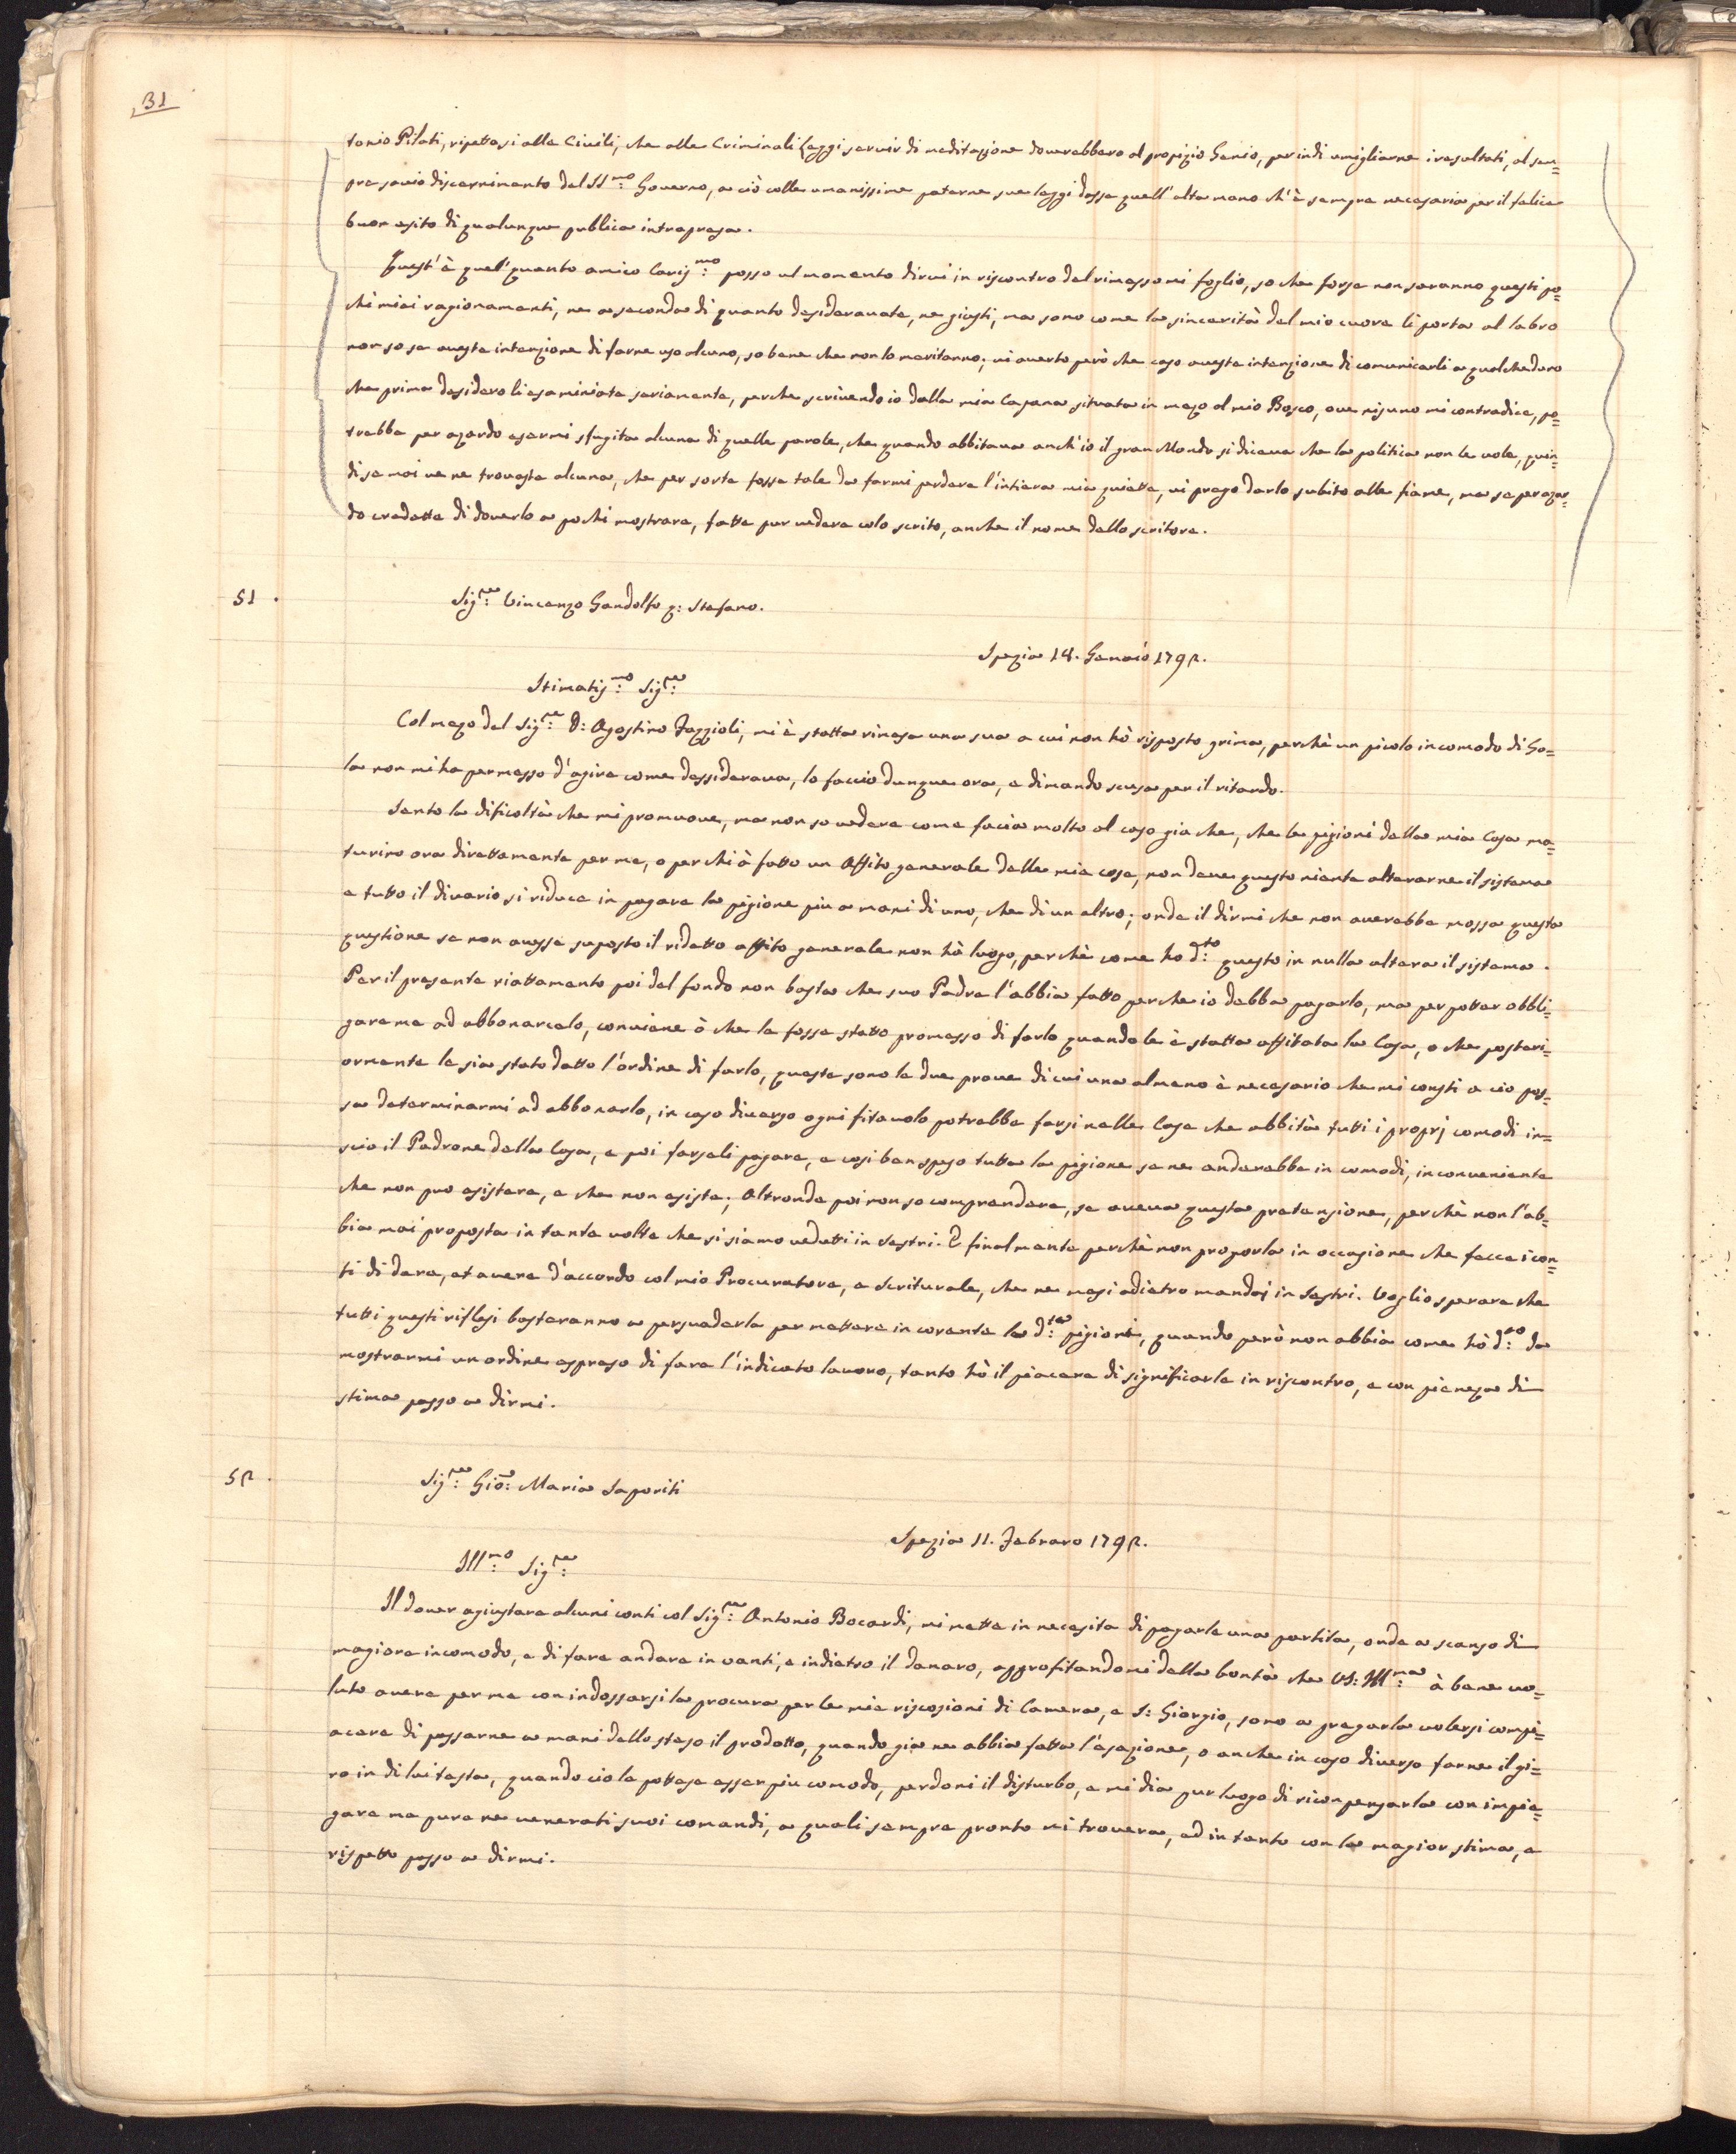 31
tonio Pilati, rispetto si alle Civili, che alle Criminali Leggi servir di meditazione doverebbero al propizio Genio, per indi umigliarne i resultati, al sem=
pre savio discernimento del SS.mo Governo, a ciò colle umanissime paterne sue leggi dasse quell'alta mano ch'è sempre necesaria per il felice
buon esito di qualunque publica intrapresa.
Quest'è quel'quanto amico Caris.mo posso al momento dirvi in riscontro del rimessomi foglio, so che forse non saranno questi po=
chi miei ragionamenti, ne a seconda di quanto desideravate, ne giusti, ma sono come la sincerità del mio cuore li porta al labro
non so se aveste intenzione di farne uso alcuno, so bene che non lo meritanno; vi averto però che caso aveste intenzione di comunicarli a qualcheduno
che prima desidero li esaminiate seriamente, perche scrivendo io dalla mia Capana situata in mezo al mio Bosco, ove nisuno mi contradice, po=
trebbe per azardo esermi sfugita alcuna di quelle parole, che quando abbitava anch'io il gran Mondo si diceva che la politica non le vole, quin=
di se mai ve ne trovaste alcuna, che per sorte fosse tale da farmi perdere l'intiera mia quiette, vi prego darlo subito alle fiame, ma se per azar=
do credette di doverlo a pochi mostrare, fatte pur vedere colo scrito, anche il nome dello scritore.
51.
Sig.re Vincenzo Gandolfo q: Stefano.
Spezia 14. Genaio 1792.
Stimatis.mo Sig.re
Col mezo del Sig.re D: Agostino Fazzioli, mi è statta rimesa una sua a cui non hò risposto prima, perchè un picolo incomodo di Go=
la non mi ha permesso d'agire come dessiderava, lo faccio dunque ora, e dimando scusa per il ritardo.
Sento la dificoltà che mi promuove, ma non so vedere come facia molto al caso gia che, che le pigioni della mia Casa ma=
turino ora direttamente per me, o per chi à fatto un Affito generale delle mie cose, non deve questo niente alterarne il sistema
e tutto il divario si riduce in pagare la pigione piu a mani di uno, che di un altro; onde il dirmi che non averebbe mossa questa
questione se non avesse suposto il ridetto affito generale non hà luogo, perchè come ho d.to questo in nulla altera il sistema.
Per il presente riattamento poi del fondo non basta che suo Padre l'abbia fatto perche io debba pagarlo, ma per potter obbli=
garme ad abbonarcelo, conviene ò che le fosse statto promesso di farlo quando le è statta affitata la Casa, o che posteri=
ormente le sia stato datto l'ordine di farlo, queste sono le due prove di cui una almeno è necesario che mi consti a cio pos=
sa determinarmi ad abbonarlo, in caso diverso ogni fitavolo potrebbe farsi nelle Case che abbità tutti i proprj comodi in=
scio il Padrone della Casa, e poi farseli pagare, e cosi ben speso tutta la pigione se ne anderebbe in comodi, inconveniente
che non puo esistere, e che non esiste; Altronde poi non so comprendere, se aveva questa pretensione, perchè non l'ab=
bia mai proposta in tante volte che si siamo vedutti in Sestri. E finalmente perchè non proporla in occasione che fecce i con=
ti di dare, et avere d'accordo col mio Procuratore, e Scriturale, che ne mesi adietro mandaj in Sestri. Voglio sperare che
tutti questi riflesi basteranno a persuaderla per mettere in corente la d.ta pigioni, quando però non abbia come hò d.to da
mostrarmi un ordine espreso di fare l'indicato lavoro, tanto hò il piacere di significarle in riscontro, e con pieneza di
stima passo a dirmi.
52.
Sig.re Gio: Maria Saporiti
Spezia 11. Febraro 1792.
Ill.mo Sig.re
Il dover agiustare alcuni conti col Sig.re Antonio Bocardi, mi mette in necesita di pagarle una partita, onde a scanso di
magiore incomodo, e di fare andare in vanti, e indietro il danaro, approfitandomi della bontà che VS: Ill.ma à bene vo=
luto avere per me con indossarsi la procura per le mie riscosioni di Camera, e S: Giorgio, sono a pregarla volersi compi=
acere di passarne a mani dello steso il prodotto, quando gia ne abbia fatta l'esazione, o anche in caso diverso farne il gi=
ro in di lui testa, quando cio le pottese esser piu comodo, perdoni il disturbo, e mi dia pur luogo di riconpensarla con impie=
gare me pure ne venerati suoi comandi, a quali sempre pronto mi troverà, ed in tanto con la magior stima, e
rispetto passo a dirmi.